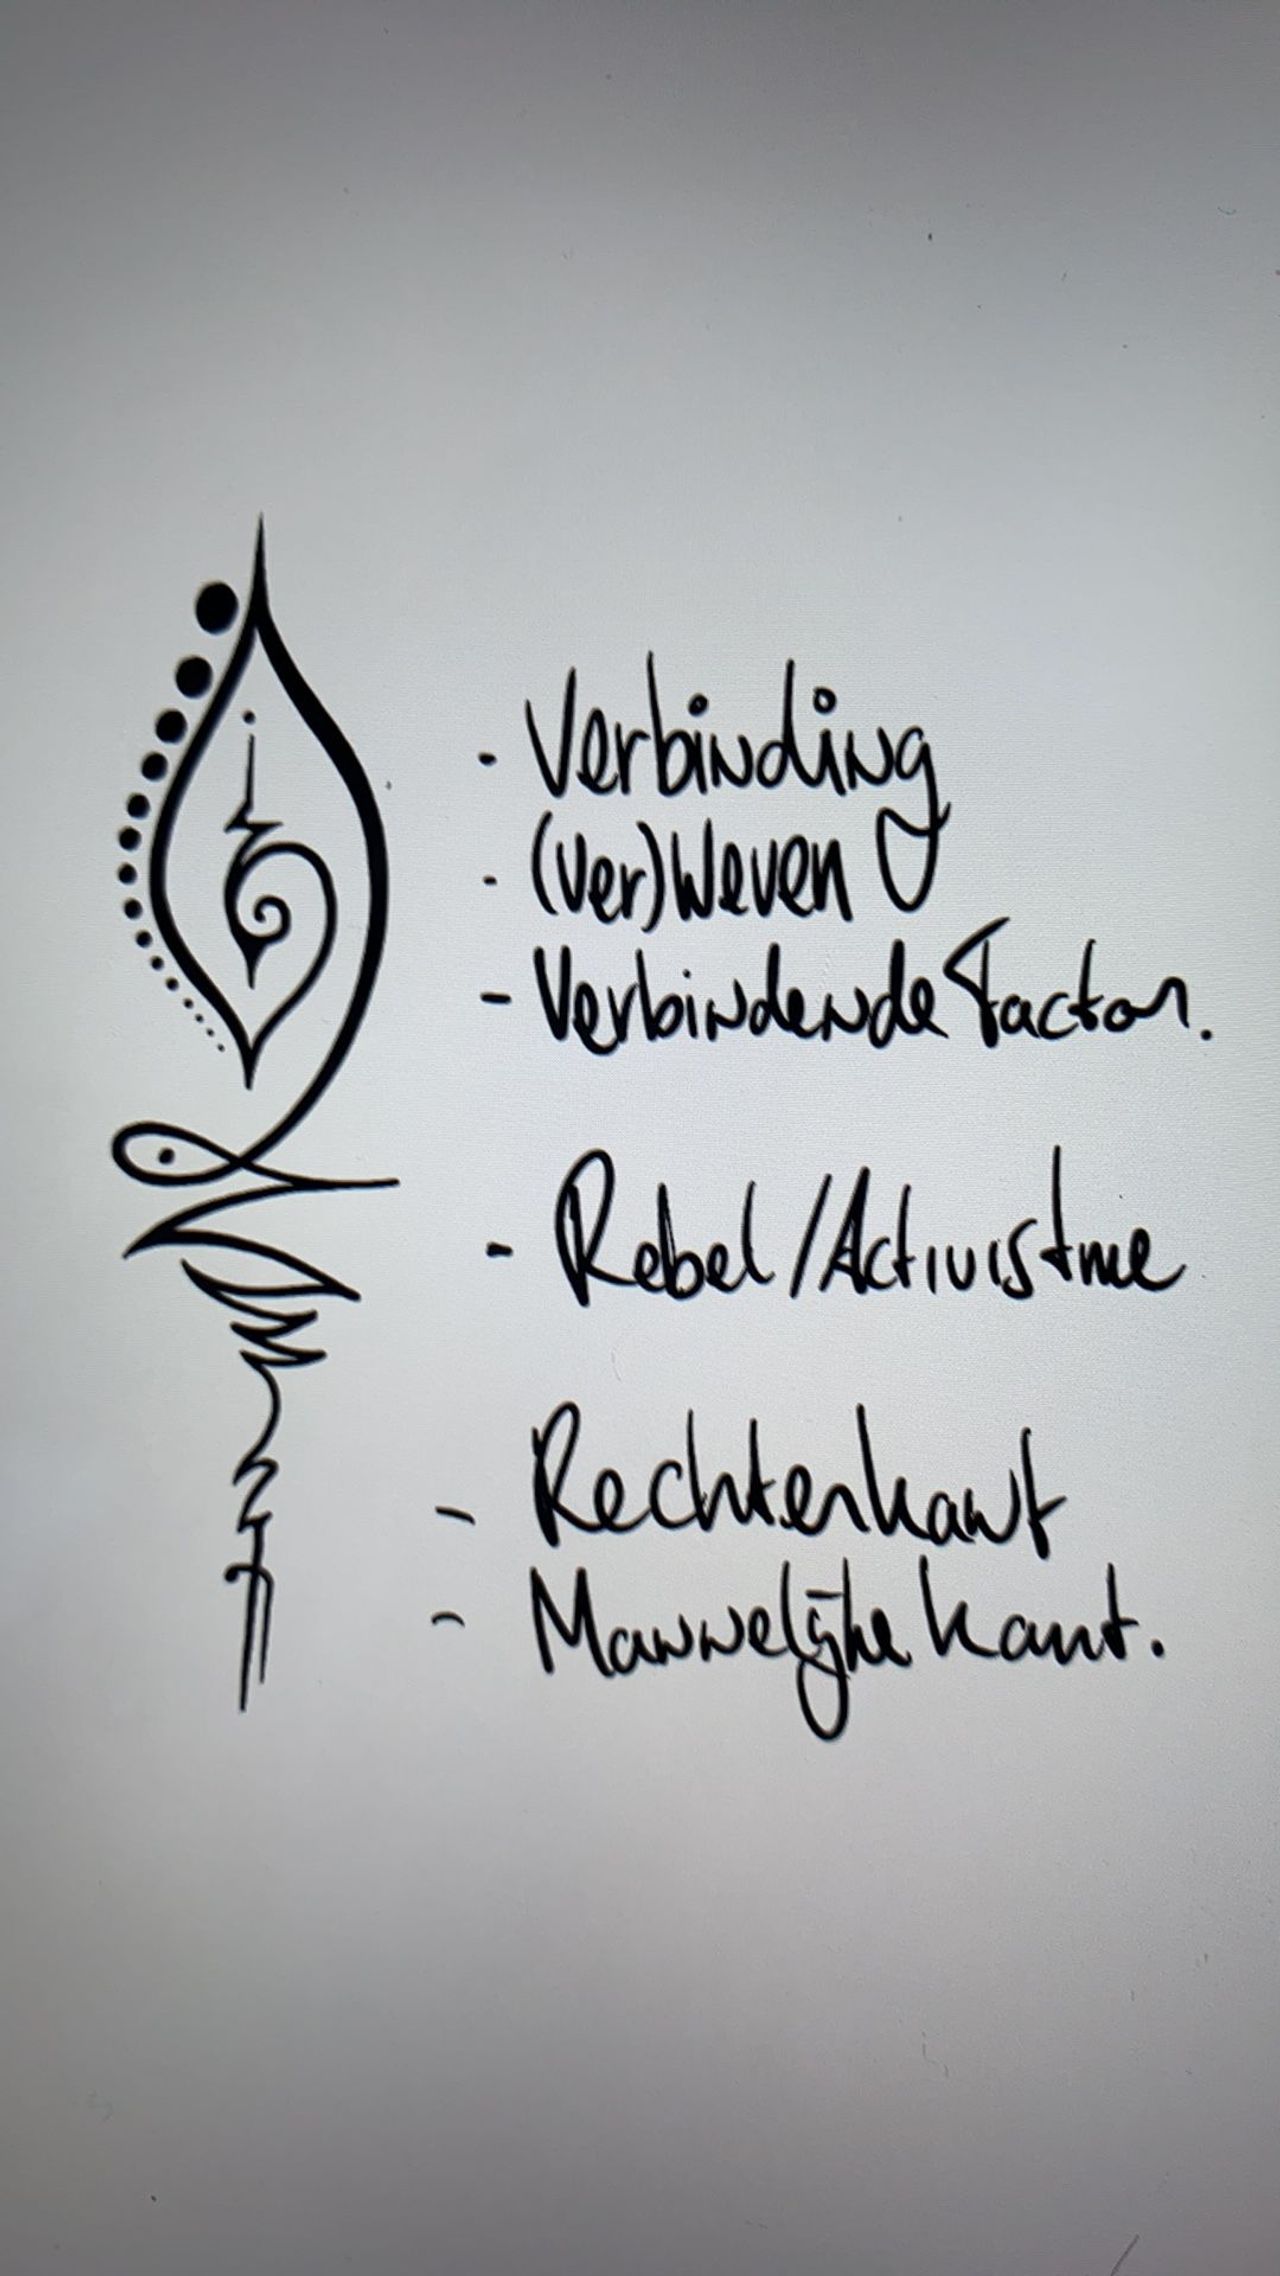 - Verbinding
- (ver)weven
- Verbindende Factor.
- Rebel/Activisme
- Rechterkant
- Mannelijke kant.